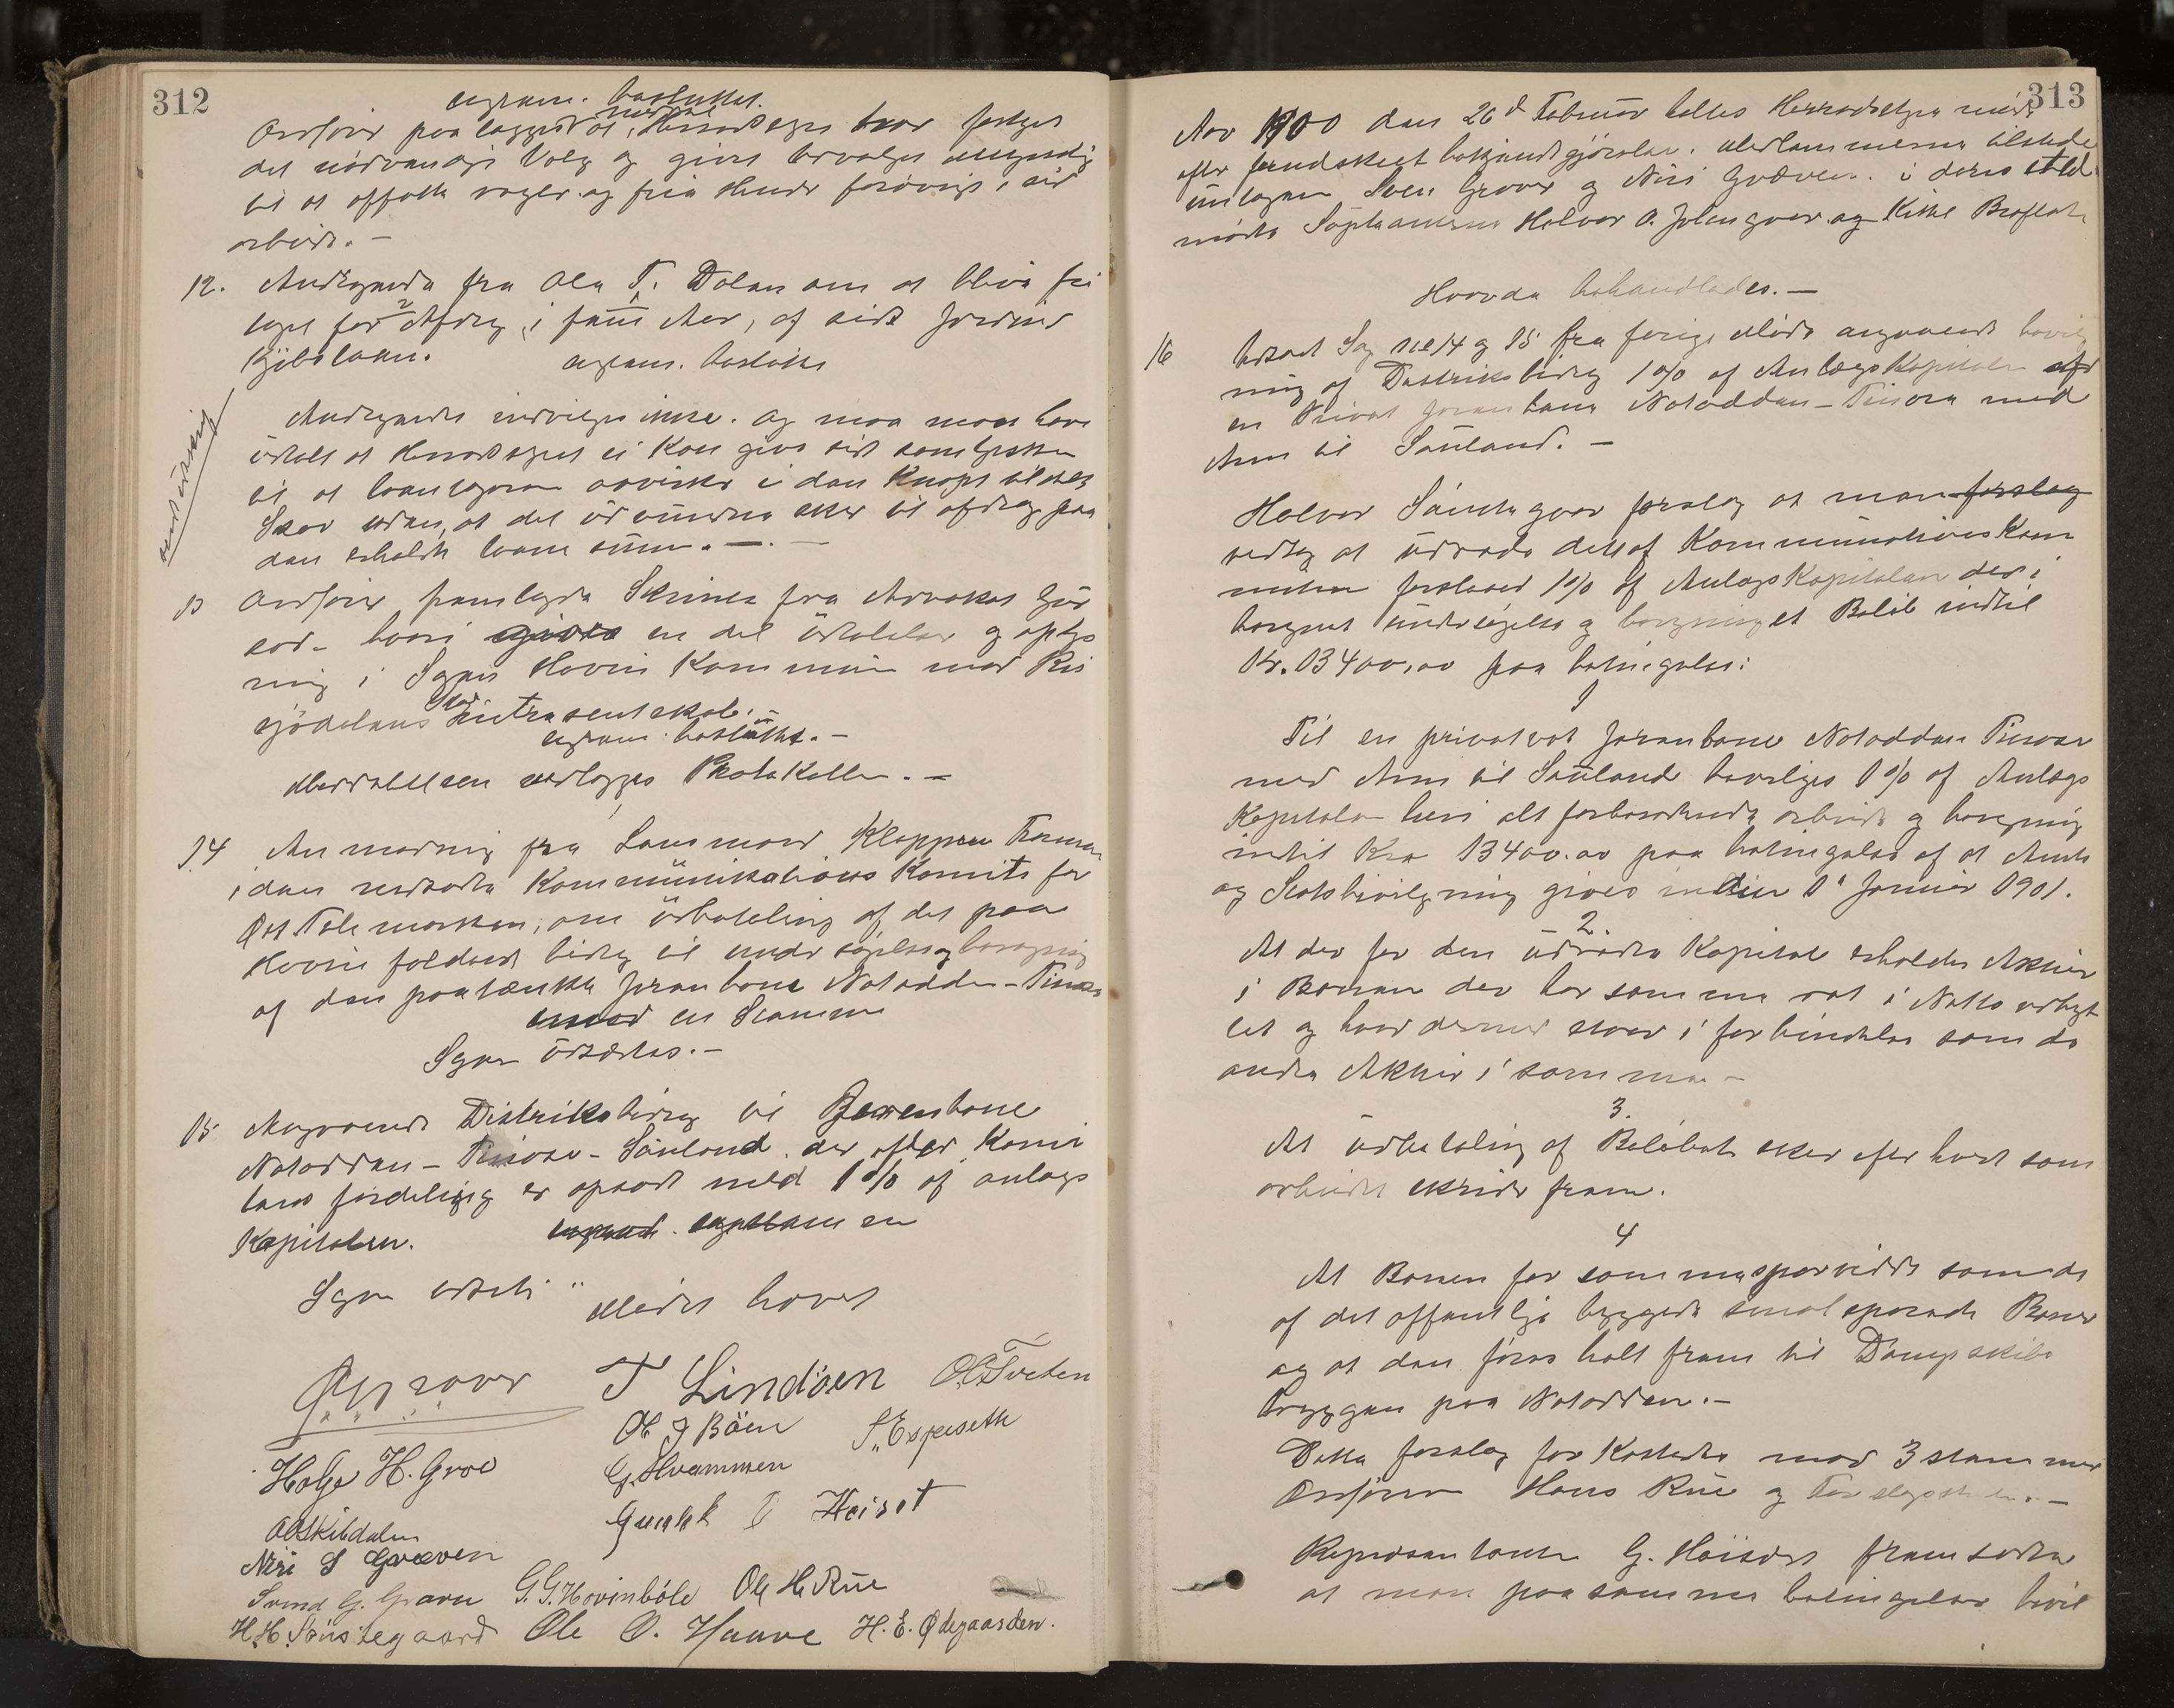 312
eenstem. besluttet.
Ordfører paalagges at, Herredstyret har foretget
det nødvendige Valg og giver Udvalget myndig
til at opsætte regler og frie Hender forøvrigt, sid
arbeide. —
12. Andragende fra Ole T. Dalen om at blive fri
taget for 2 Afdrag, i fem Aar, af sidt Jordind
Kjøbslaan. eenstem. besluttet
Andragendet indvilges ikke. og maa man have
udtalt at Herredstyret ei Kan give sidt samtykke
til at laantageren avvirker i den Knapt tilstede
Skov uden, at det udvundne sker til afdrag paa
den erholdte laane sum. —
sendt udskrift
13 Ordfører fremlagde Skrivelse fra Advokat
hvori gives en del Udtalelser og oplys
ning i Sagen Hovin Kommune mod
sjødalens Interesentskab.
eenstem. besluttet. —
Meddelelsen vedlegges Protokollen. —
14 Anmodning fra Lensmand Kleppen Formand
i den nedsatte Kommunikations Komite for
Øst Telemarken, om Udbetaling af det paa
Hovin faldende bidrag til undersøgelse og beregning
af den paatænkte Jernbane Notodden – Tinoset
en Stemme
Sagen udsættes. —
15 Angaaende Distriktsbidrag til Jernbane
Notodden – Tinoset – Sauland der efter Komi
teens fordeling er opsadt med 1 % af anlegs
Kapitalen.
Sagen udsat Mødet hævet
T Lindøen O. Tveten
Ole J Bøen S. Espeseth
Helge H. Groe G. Hvammen
Gunleik Heiset
O Skibdalen
Niri S Græven
Svend G. Graven G. G. Hovinbøle Ole H. Rue
H. H. Sønstegaard Ole O. Haave H. E. Ødegaarden.
313
Aar 1900 den 26d Februar holtes Herredstyre møde
efter forudskeet bekjendtgjørelse. Medlemmerne tilstede
undtagen Sven Graver og Niri Græven. i deres sted
mødte Suppleanterne Halvor O. Johnsgaar og Kittil Brofladt
Hvorda behandledes. —
16 Udsat Sag No 14 og 15 fra forige Møde angaaende bevilg
ning af Distriksbidrag 1 % af Anlægs Kapitalen af
en Privat Jernbane Notodden – Tinoset med
Arm til Sauland. —
Halvor Sønstegaar forslog at man forslag
vedtog at udrede dett af Kommunikations Kom
miteen foreslaaed 1 % af Anlægs Kapitalen der i
beregnet undersøgelse og beregning et Beløb indtil
Kr. 13400,00 paa betingelse:
1
Til en privat Jernbane Notodden Tinoset
med Arm til Sauland bevilges 1 % af Anlægs
Kapitalen heri alt forberedende arbeide og beregning
indtil Kr 13400.00 paa betingelse af at Amts
og Statsbevilgning gives inden 1' Januar 1901.
2.
At der for den udredte Kapital erholdes Aktier
i Banen der har samme ret i Netto udbyt
tet og hvad dermed staar i forbindelse som de
andre Aktier i samme —
3.
At udbetaling af Beløbet sker efter hvert som
arbeidet skrider frem.
4
At Banen faar samme sporvidde som de
af det offentlige byggede smalsporede Baner
og at den føres helt frem til Dampskibs
Bryggen paa Notodden. —
Dette forslag forkastedes mod 3 stemmer
Ordføreren Hans Rue og Forslagstilleren. —
Repræsentanten G. Høiset fremsatte
at man paa samme betingelser bevil